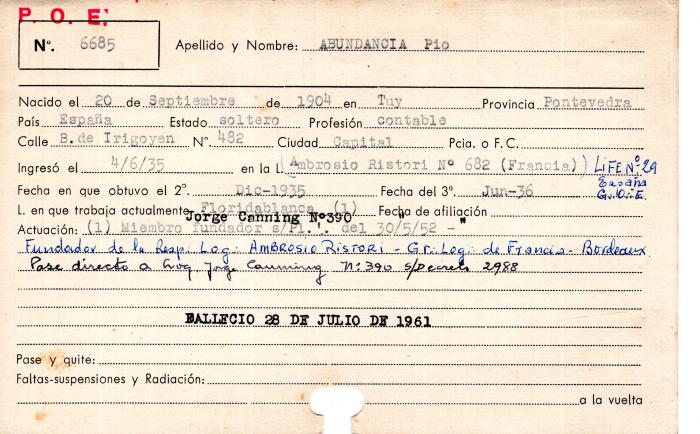 P. O. E.
Nº. 6685 Apellido y Nombre: ABUNDANCIA Pio
Nacido el 20 de Septiembre de 1904 en Tuy Provincia Pontevedra
País España Estado soltero Profesión contable
Calle B.de Irigoyen Nº 482 Ciudad Capital Pcia. o F. C.
Ingresó el 4/6/35 en la L. (Ambrosio Ristori Nº 682 (Francia) ) LIFE Nº 29
España
G.O.E.
Fecha en que obtuvo el 2º. Dic-1935 Fecha del 3º. Jun-36
L. en que trabaja actualmente Floridablanca (1) Fecha de afiliación "
Jorge Canning Nº390
Actuación: (1) Miembro fundador s/Pl.'. del 30/5/52 -
Fundador de la Resp. Log: AMBROSIO RISTORI - Gr. Log: de Francia - Bordeaux
Pase directo a Log Jorge Canning Nº: 390 s/Decreto 2988
FALLECIO 28 DE JULIO DE 1961
Pase y quite:
Faltas-suspensiones y Radiación:
a la vuelta